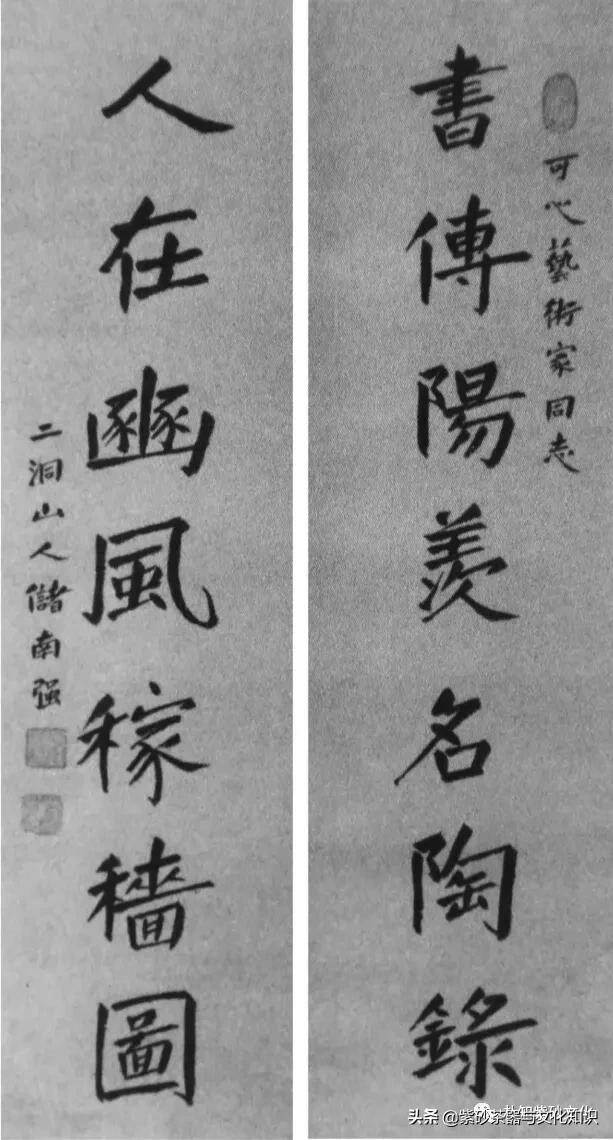 可心藝術家同志
書傳陽羨名陶錄
人在豳風稼穡圖
二洞山人儲南强
头条 @紫砂茶器与文化知识